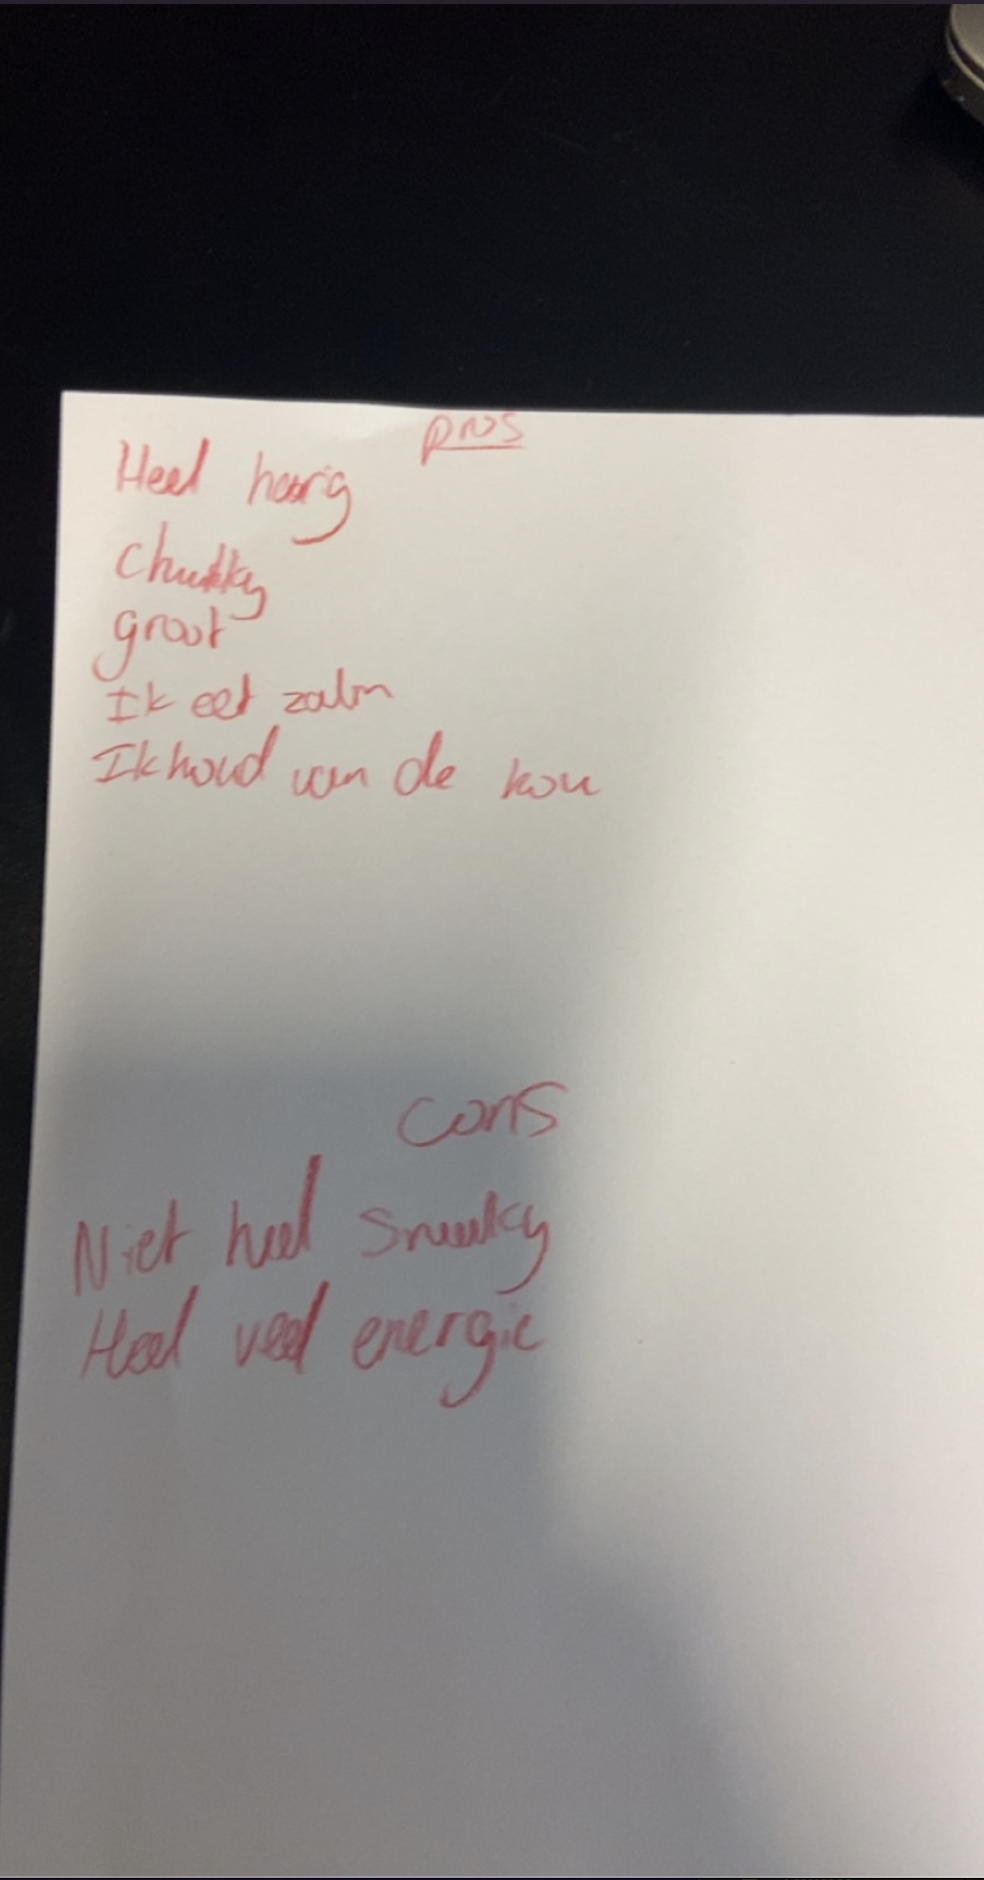 pros
Heel harig
Chukky
groot
Ik eet zalm
Ik houd van de kou
cons
Niet heel sneaky
Heel veel energie